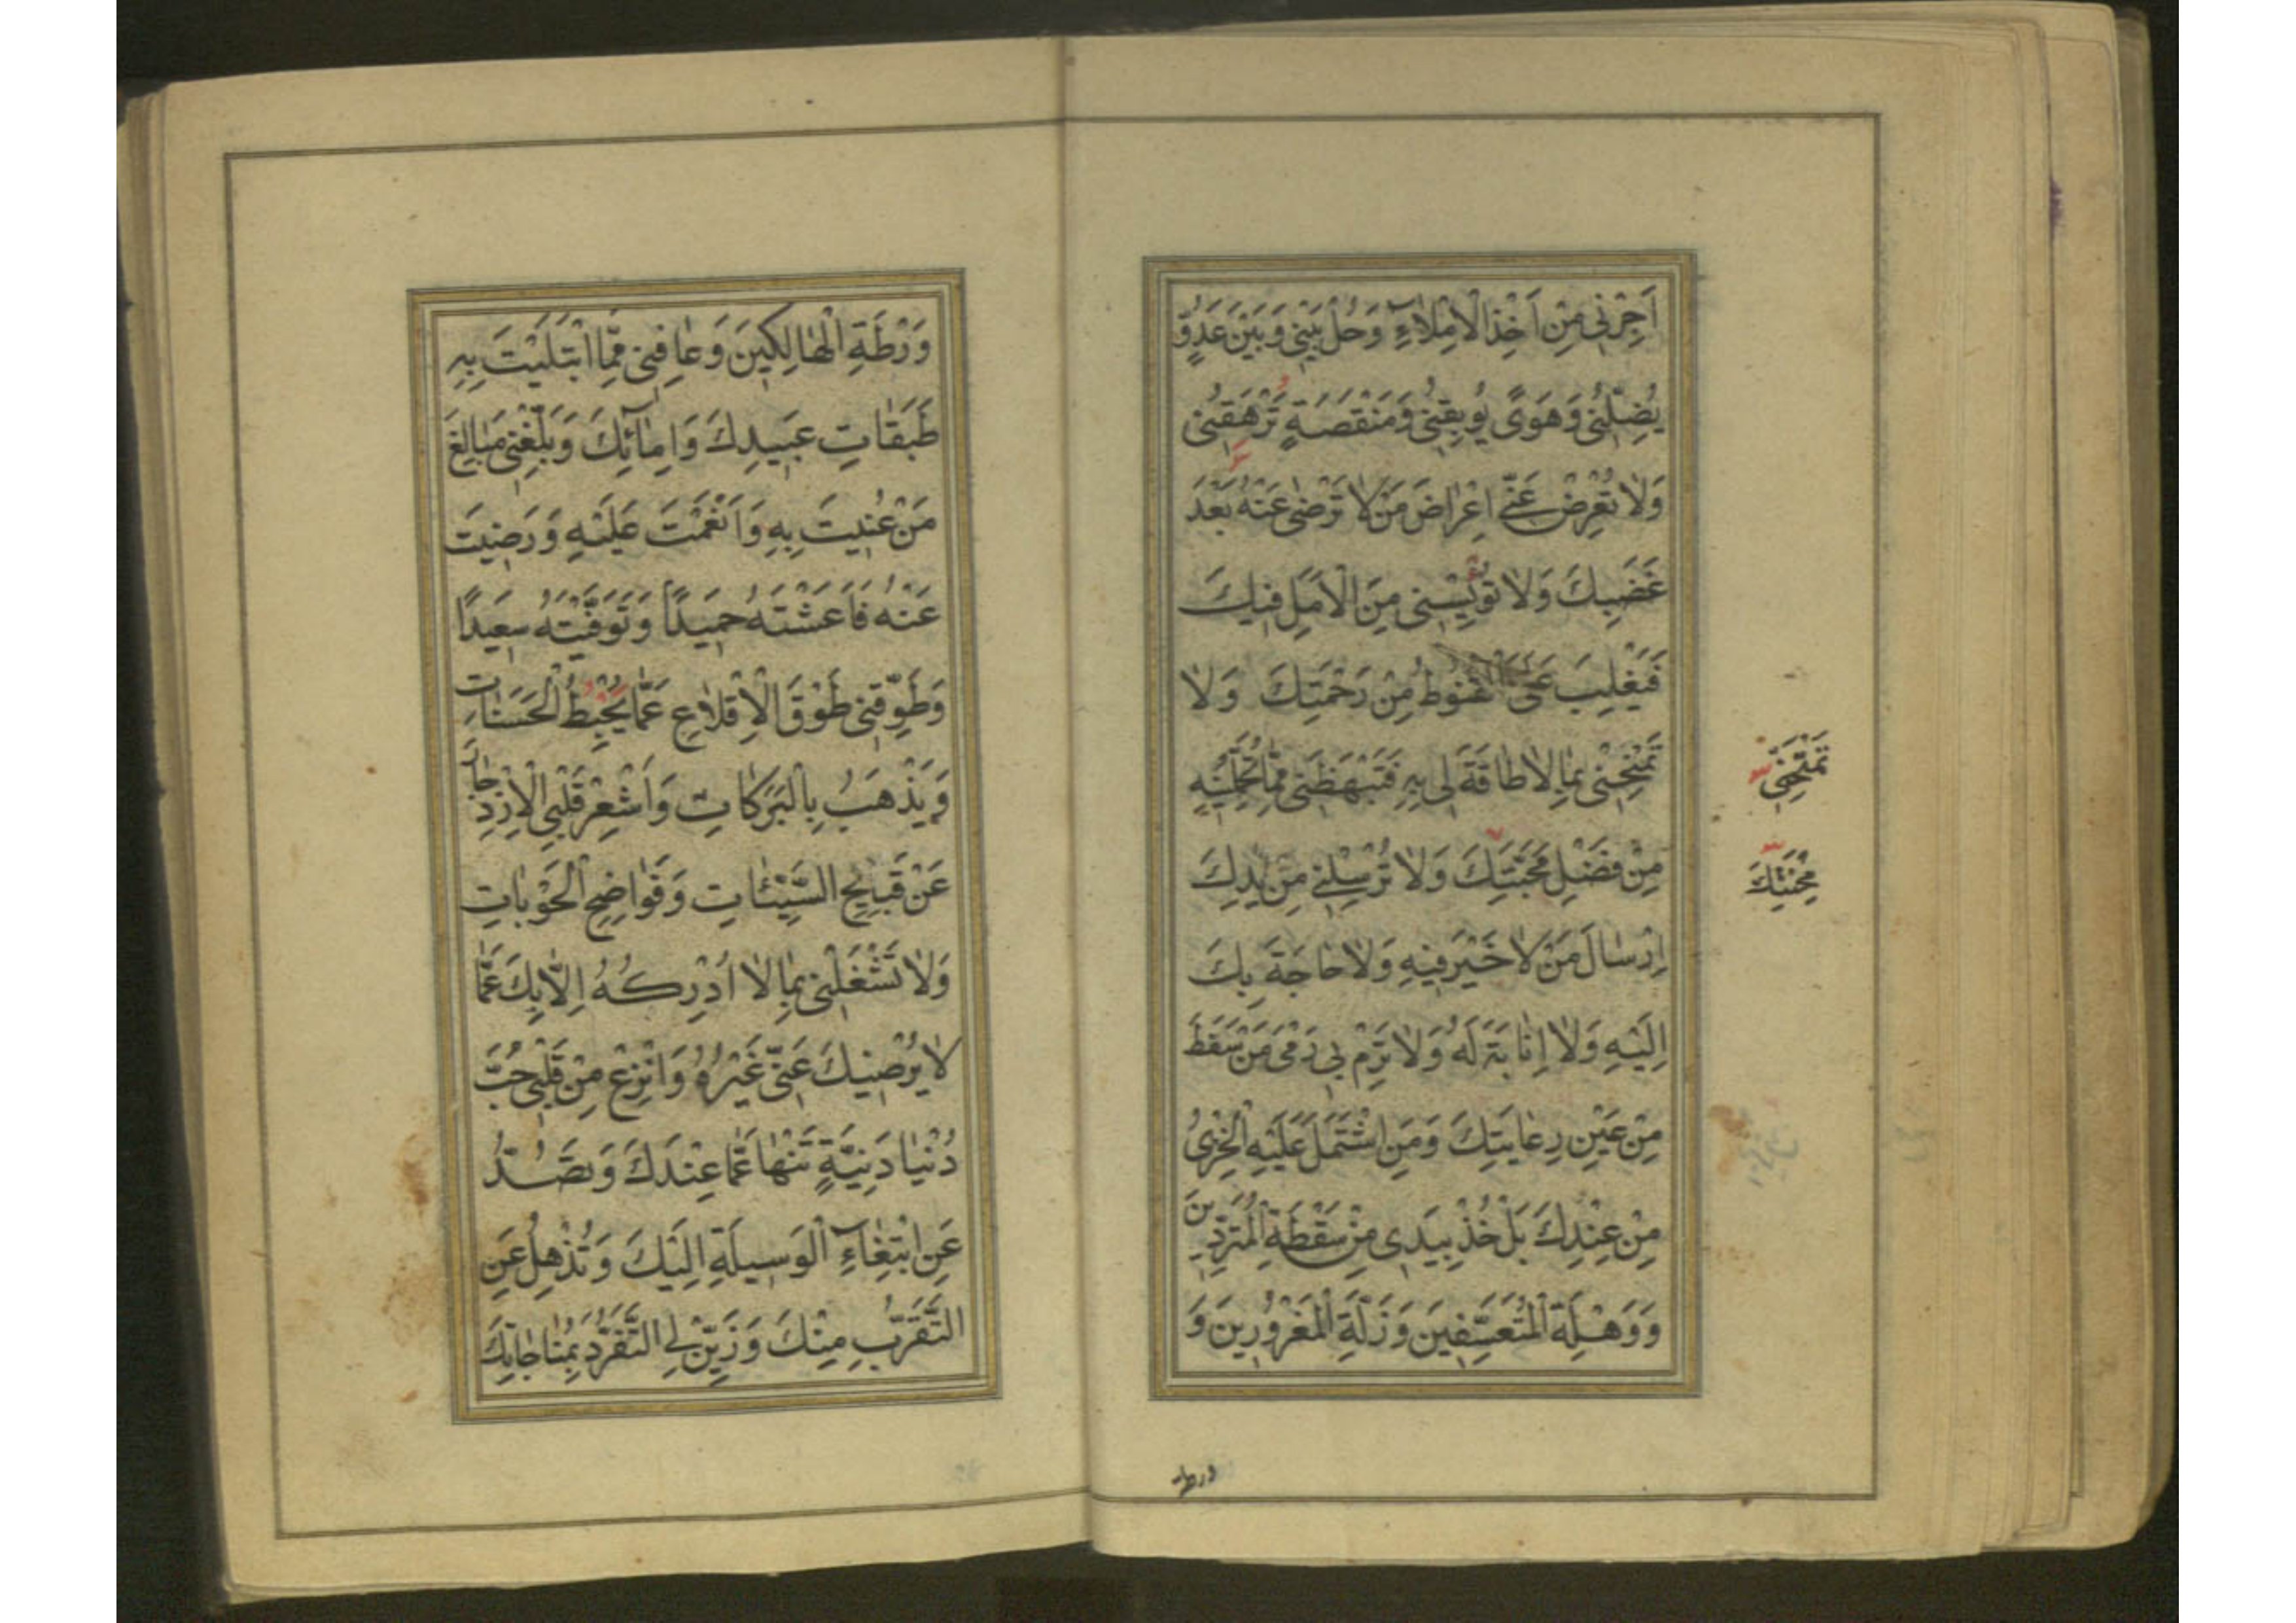 اَجِرْنی مِنْ اَخْذِ الْاِمْلآءِ وَحُلْ بَیْنی وَبَیْنَ عَدُوٍّ
یُضِلُّنی وَهَوًی یُوبِقُنی وَمَنْقَصَةٍ تَرْهَقُنی
وَلا تُعْرِضْ عَنّی اِعْراضَ مَنْ لا تَرْضی عَنْهُ بَعْدَ
غَضَبِكَ وَلا تُؤْیِسْنی مِنَ الْاَمَلِ فیكَ
فَیَغْلِبَ عَلَیَّ الْقُنُوطُ مِنْ رَحْمَتِكَ وَلا
تَمْنَحْنی بِما لا طاقَةَ لی بِهِ فَتَبْهَظَنی مِمّا تُحَمِّلُنیهِ
مِنْ فَضْلِ مَحَبَّتِكَ وَلا تُرْسِلْنی مِنْ یَدِكَ
اِرْسالَ مَنْ لا خَیْرَ فیهِ وَلا حاجَةَ بِكَ
اِلَیْهِ وَلا اِنابَةَ لَهُ وَلا تَرْمِ بی رَمْیَ مَنْ سَقَطَ
مِنْ عَیْنِ رِعایَتِكَ وَمَنِ اشْتَمَلَ عَلَیْهِ الْخِزْیُ
مِنْ عِنْدِكَ بَلْ خُذْ بِیَدی مِنْ سَقْطَةِ الْمُتَرَدّینَ
وَوَهْلَةِ الْمُتَعَسِّفینَ وَزَلَّةِ الْمَغْرُورینَ وَ
تَمْتَحِنّی
مِحْنَتِكَ
ورطة
وَرْطَةِ الْهالِكینَ وَعافِنی مِمَّا ابْتَلَیْتَ بِهِ
طَبَقاتِ عَبیدِكَ وَاِمآئِكَ وَبَلِّغْنی مَبالِغَ
مَنْ عُنیتَ بِهِ وَاَنْعَمْتَ عَلَیْهِ وَرَضیتَ
عَنْهُ فَاَعَشْتَهُ حَمیدًا وَتَوَفَّیْتَهُ سَعیدًا
وَطَوِّقْنی طَوْقَ الْاِقْلاعِ عَمّا یُحْبِطُ الْحَسَناتِ
وَیَذْهَبُ بِالْبَرَكاتِ وَاَشْعِرْ قَلْبِیَ الْاِزْدِجارَ
عَنْ قَبیحِ السَّیِّئاتِ وَفَواضِحِ الْحَوْباتِ
وَلا تَشْغَلْنی بِما لا اُدْرِكُهُ اِلّا بِكَ عَمّا
لا یُرْضیكَ عَنّی غَیْرُهُ وَانْزِعْ مِنْ قَلْبی حُبَّ
دُنْیا دَنِیَّةٍ تَنْهی عَمّا عِنْدَكَ وَتَصُدُّ
عَنِ ابْتِغآءِ الْوَسیلَةِ اِلَیْكَ وَتُذْهِلُ عَنِ
التَّقَرُّبِ مِنْكَ وَزَیِّنْ لِیَ التَّفَرُّدَ بِمُناجاتِكَ